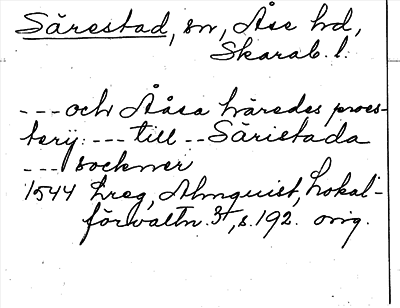 Särestad, sn, Åse hd,
Skarab. l.
--- och Aåsa häredes proes-
terij: --- till -- Säristada
--- sockner
1544 Lreg, Almquist, Lokal-
förvaltn. 3, s. 192. orig.